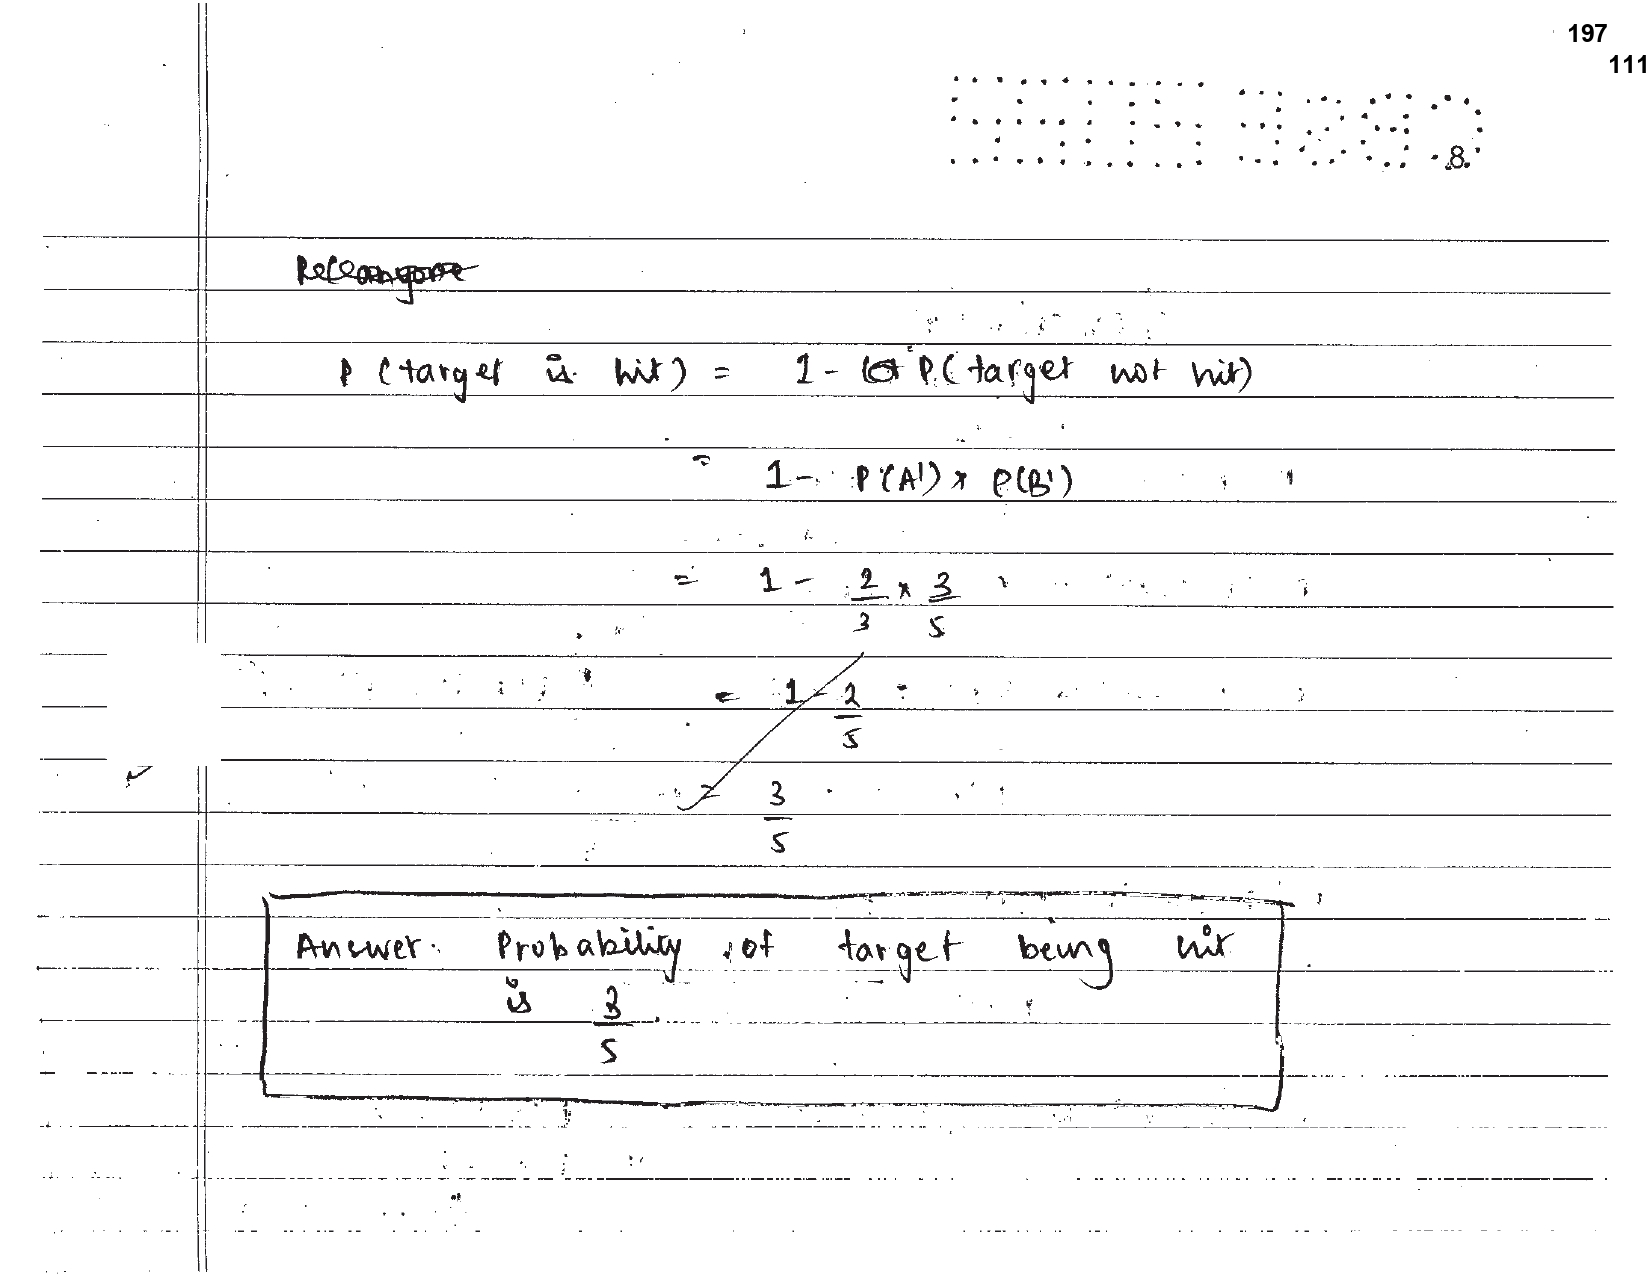 197
111
8
P (target is hit) = 1 - P(target not hit)
= 1 - P(A') × P(B')
= 1 - 2/3 × 3/5
= 1 - 2/5
= 3/5
Answer. Probability of target being hit
is 3/5.